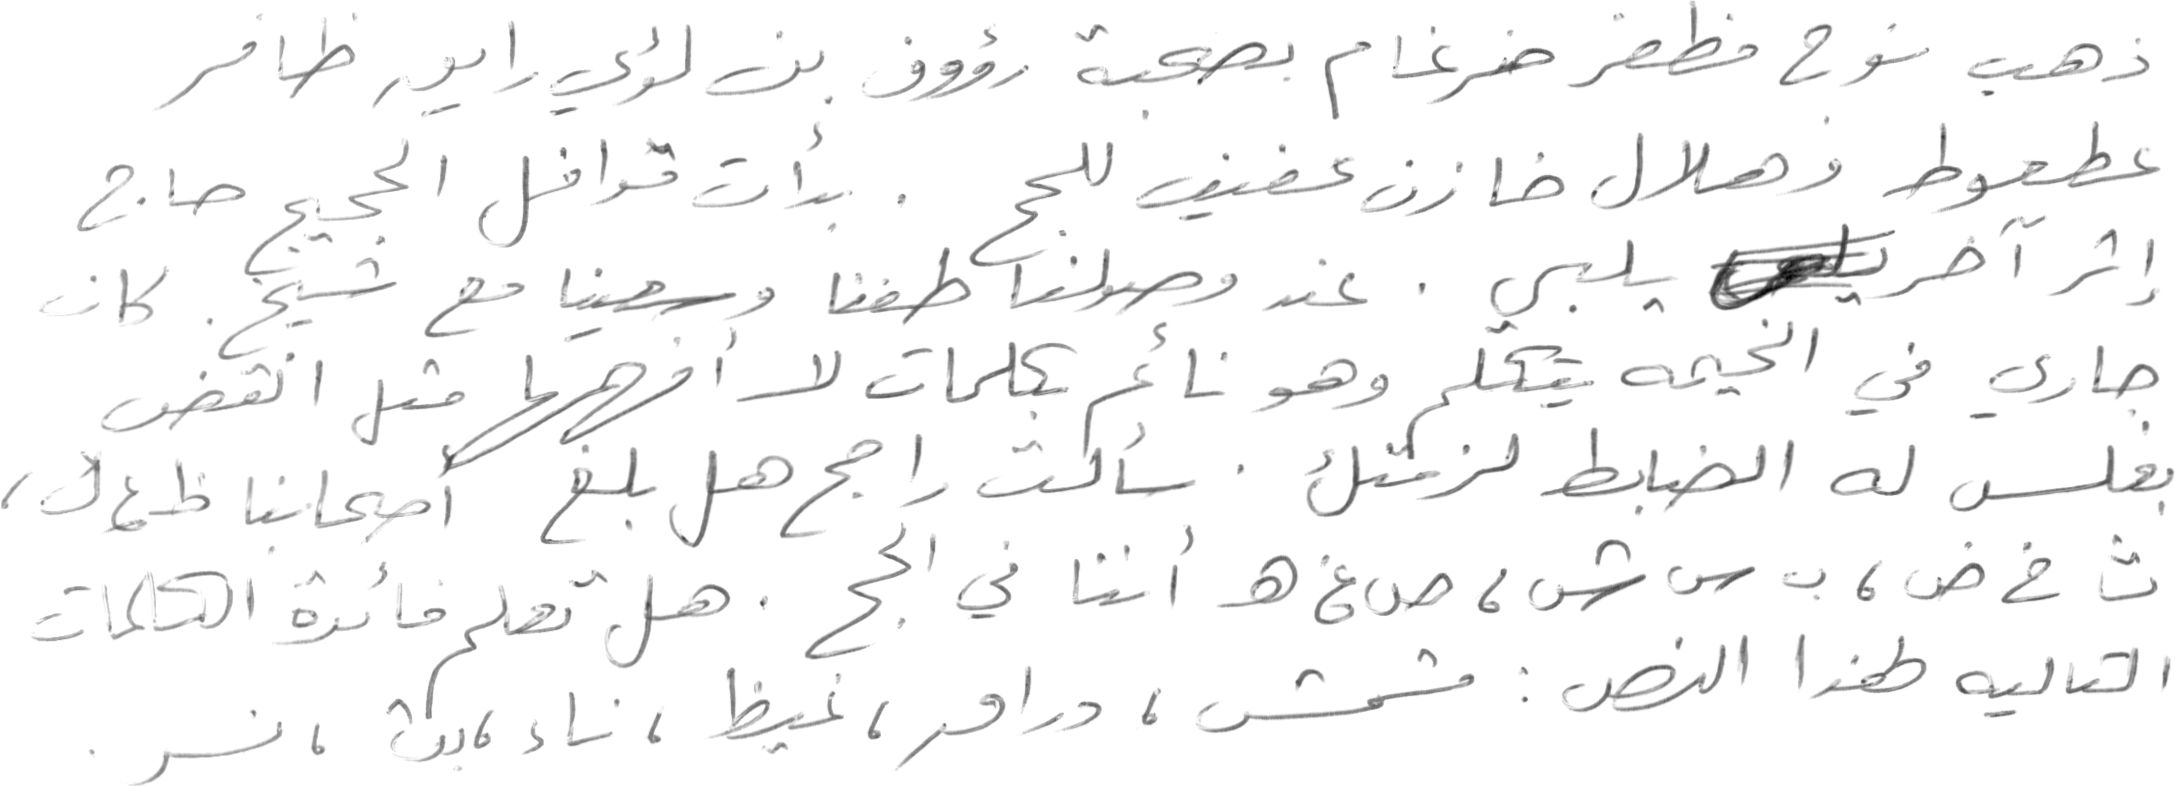 ذهب نوح مظفر ضرغام بصحبة رؤوف بن لؤي رايق ظافر
عطعوط وهلال خازن عفيف للحج . بدأت قوافل الحجيج حاج
إثر آخر يلبي . عند وصولنا طفنا وسعينا مع شيخ . كان
جاري في الخيمه يتكلم وهو نائم بكلمات لا أفهمها مثل انقض
بغلس له الضابط لزمتك . سألت راجح هل بلغ أصحابنا ظ ع ك ،
ث خ ض ، ب س ش ، ص غ هـ أننا في الحج . هل تعلم فائدة الكلمات
التاليه لهذا النص : مشمش ، دراق ، غيظ ، ناء ، بث ، نسر .